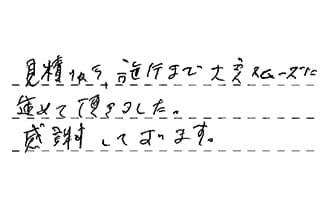 見積りから、施行まで大変スムーズに
進めて頂きました。
感謝しております。